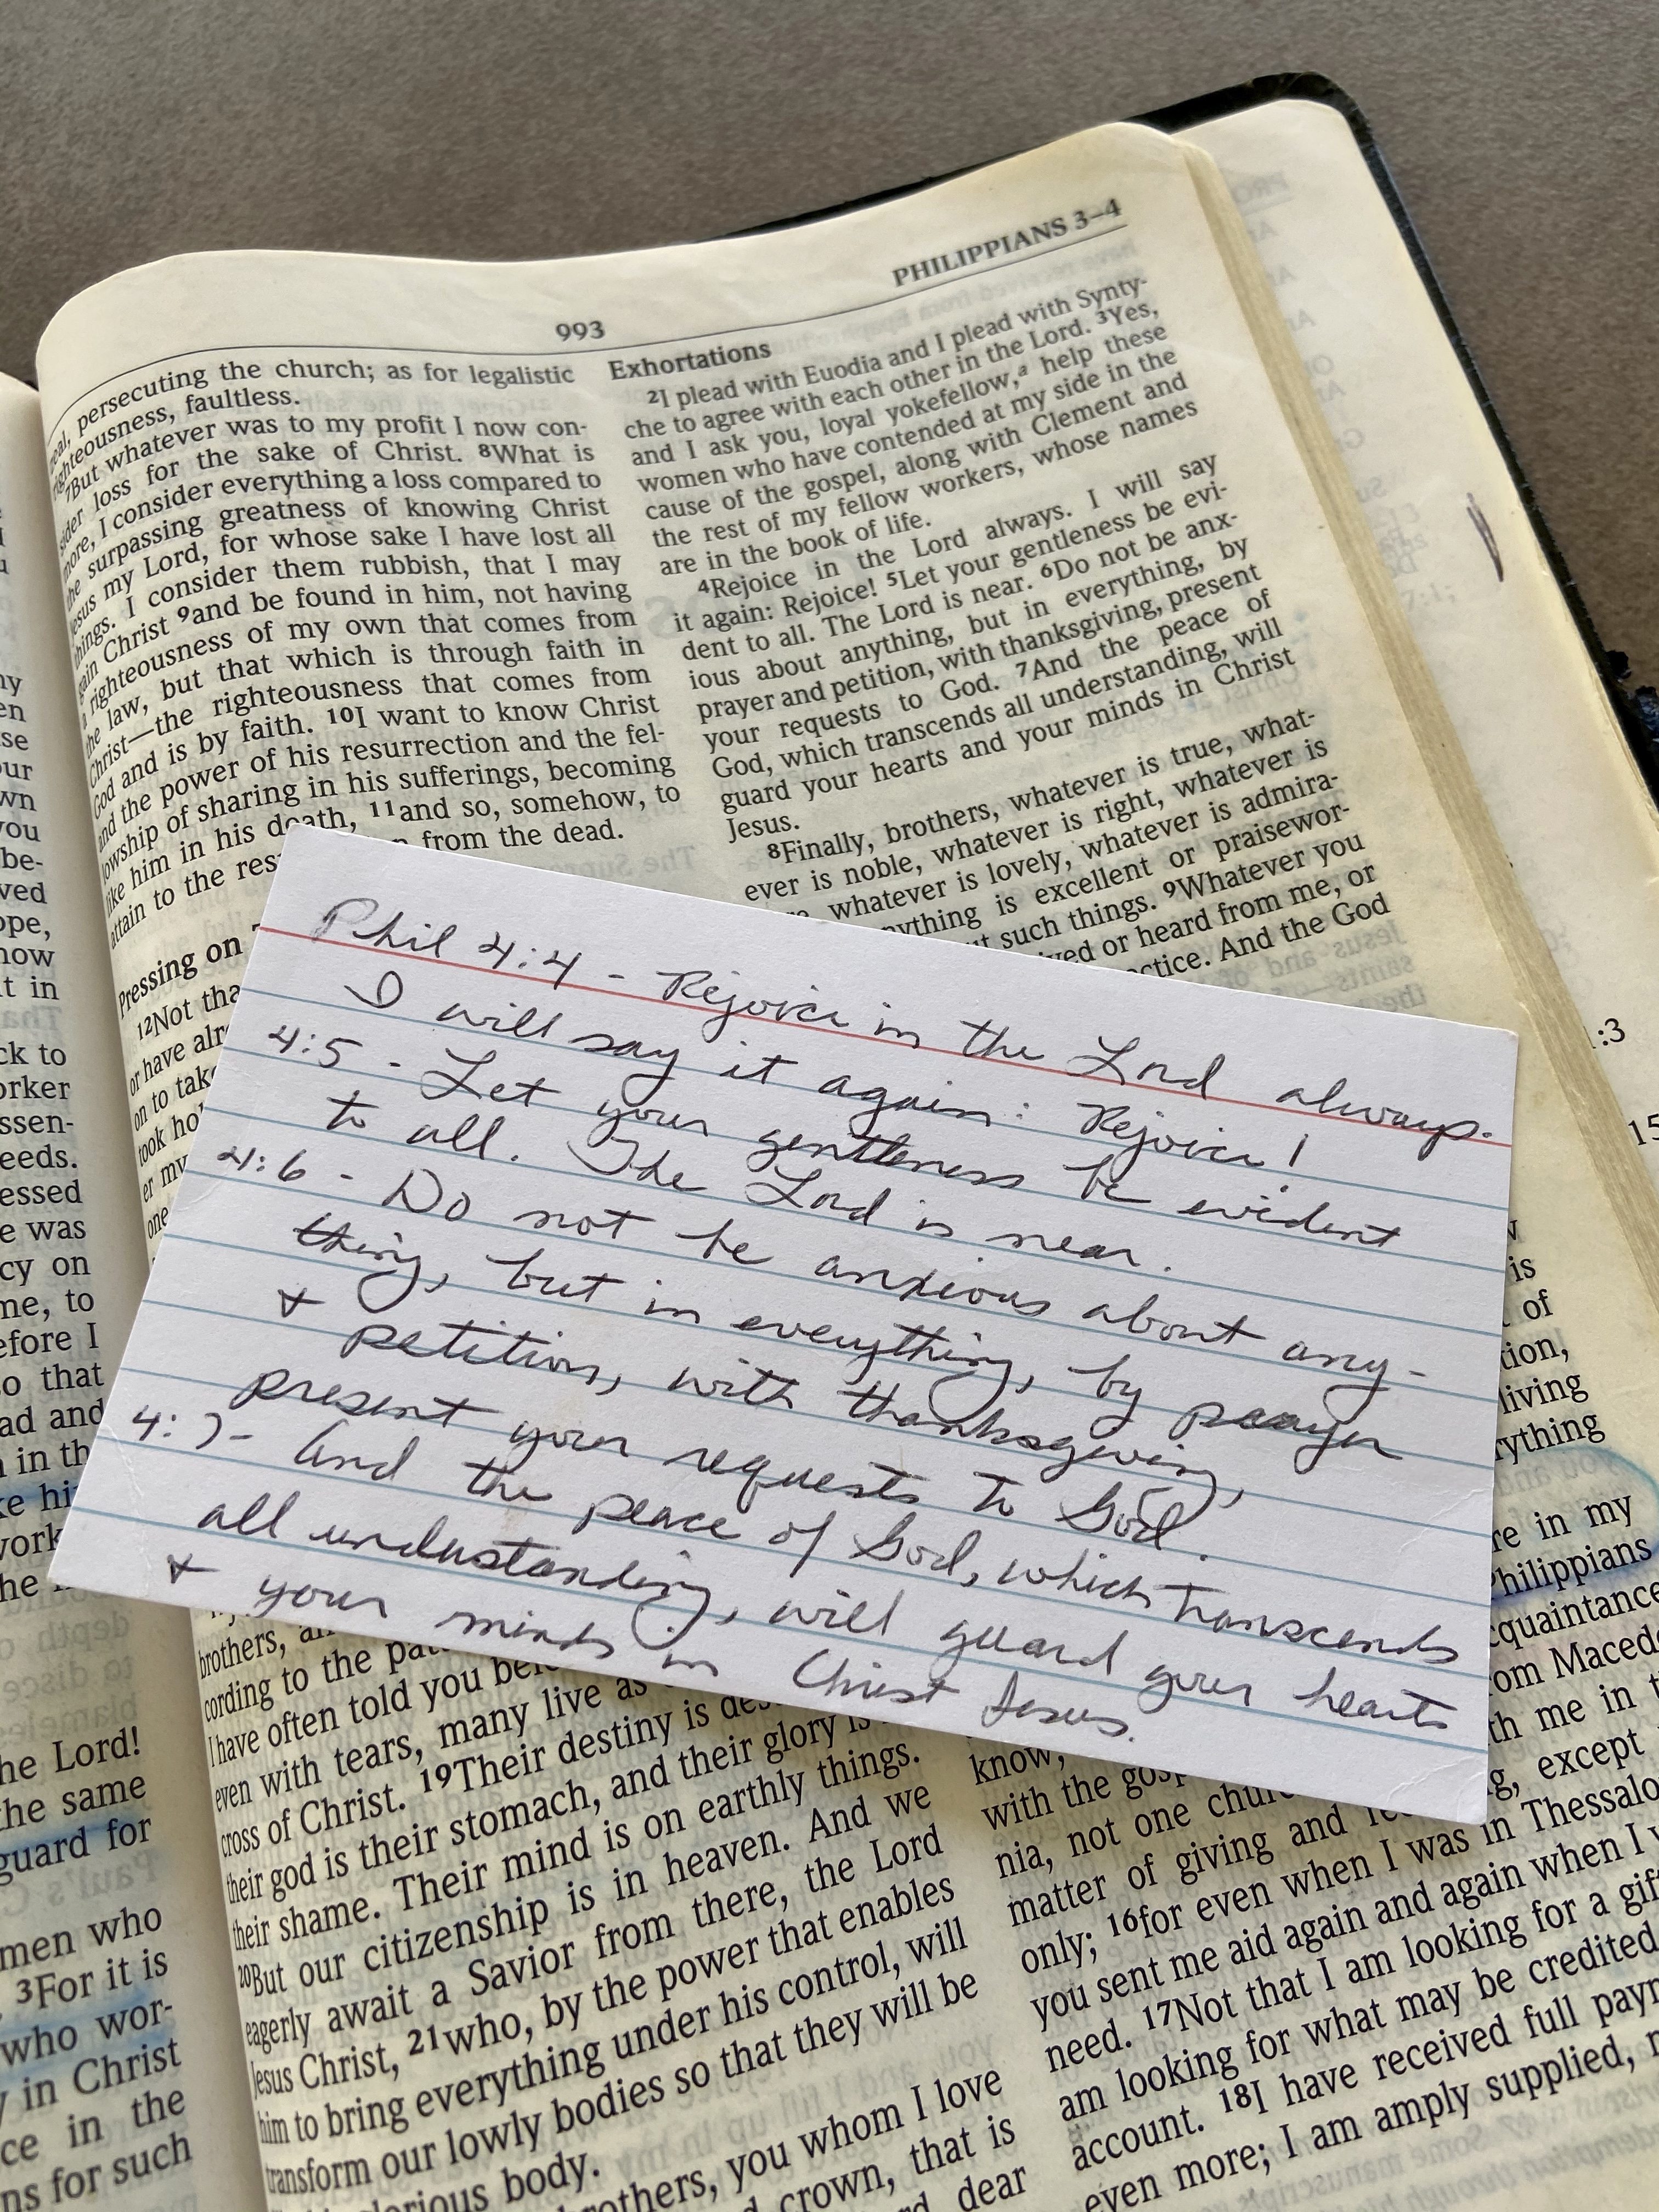 PHILIPPIANS 3–4
993
persecuting the church; as for legalistic
righteousness, faultless.
7But whatever was to my profit I now con-
sider loss for the sake of Christ. 8What is
more, I consider everything a loss compared to
the surpassing greatness of knowing Christ
Jesus my Lord, for whose sake I have lost all
things. I consider them rubbish, that I may
gain Christ 9and be found in him, not having
a righteousness of my own that comes from
the law, but that which is through faith in
Christ—the righteousness that comes from
God and is by faith. 10I want to know Christ
and the power of his resurrection and the fel-
lowship of sharing in his sufferings, becoming
like him in his death, 11and so, somehow, to
attain to the res from the dead.
Pressing on
12Not tha
or have alr
on to take
took ho
er my
one
Exhortations
2I plead with Euodia and I plead with Synty-
che to agree with each other in the Lord. 3Yes,
and I ask you, loyal yokefellow,a help these
women who have contended at my side in the
cause of the gospel, along with Clement and
the rest of my fellow workers, whose names
are in the book of life.
4Rejoice in the Lord always. I will say
it again: Rejoice! 5Let your gentleness be evi-
dent to all. The Lord is near. 6Do not be anx-
ious about anything, but in everything, by
prayer and petition, with thanksgiving, present
your requests to God. 7And the peace of
God, which transcends all understanding, will
guard your hearts and your minds in Christ
Jesus.
8Finally, brothers, whatever is true, what-
ever is noble, whatever is right, whatever is
whatever is lovely, whatever is admira-
nything is excellent or praisewor-
such things. 9Whatever you
ved or heard from me, or
ctice. And the God
Phil 4:4 - Rejoice in the Lord always.
I will say it again: Rejoice!
4:5 - Let your gentleness be evident
to all. The Lord is near.
4:6 - Do not be anxious about any-
thing, but in everything, by prayer
+ petition, with thanksgiving,
present your requests to God.
4:7 - And the peace of God, which transcends
all understanding, will guard your hearts
+ your minds in Christ Jesus.
brothers, an
cording to the pat
I have often told you bef
even with tears, many live as
cross of Christ. 19Their destiny is des
their god is their stomach, and their glory is
their shame. Their mind is on earthly things.
20But our citizenship is in heaven. And we
eagerly await a Savior from there, the Lord
Jesus Christ, 21who, by the power that enables
him to bring everything under his control, will
transform our lowly bodies so that they will be
body.
brothers, you whom I love
crown, that is
dear
is
of
tion,
living
rything
re in my
Philippians
cquaintance
rom Maced
th me in
know, except
with the gosp
nia, not one chur in Thessalo
matter of giving and again when I
only; 16for even when I was
you sent me aid again and
need. 17Not that I am looking for a gif
am looking for what may be credited
account. 18I have received full payr
even more; I am amply supplied,
:3
15
my
en
se
our
wn
you
be-
ved
ope,
now
t in
ck to
orker
ssen-
eeds.
essed
e was
cy on
me, to
efore I
o that
ad and
in th
ke hi
work
he
he Lord!
the same
guard for
men who
3For it is
who wor-
in Christ
ce in the
ns for such